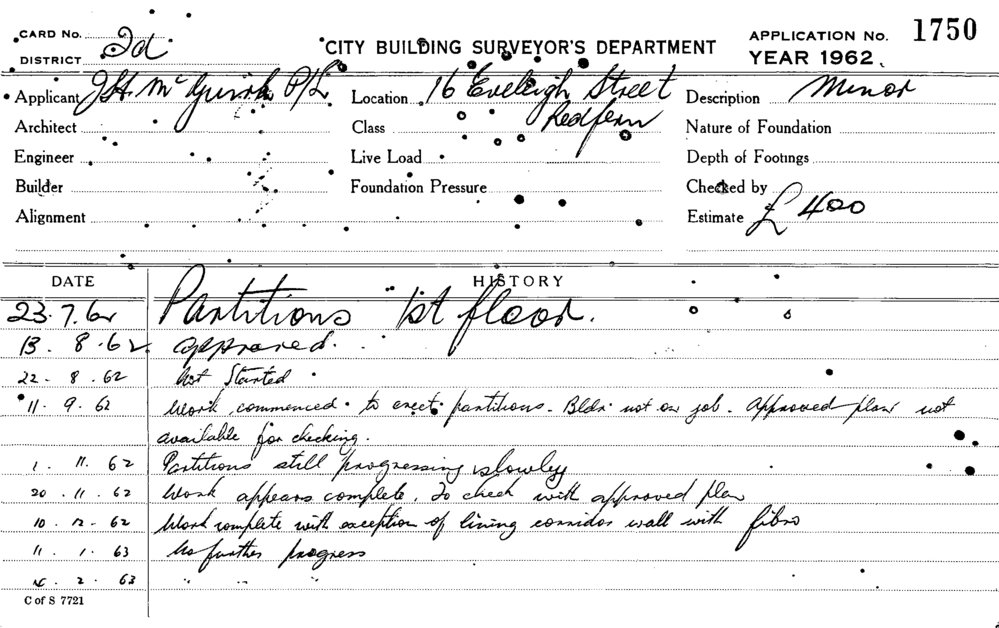 CARD No.
DISTRICT 2d
CITY BUILDING SURVEYOR'S DEPARTMENT
APPLICATION No. 1750
YEAR 1962
Applicant J.H. McGuirk P/L
Location 16 Eveleigh Street
Redfern
Description Minor
Architect
Class
Nature of Foundation
Engineer
Live Load
Depth of Footings
Builder
Foundation Pressure
Checked by
Alignment
Estimate £400
DATE HISTORY
23.7.62 Partitions 1st floor.
13.8.62 approved.
22.8.62 Not Started
11.9.62 Work commenced to erect partitions. Bldr not on job. Approved plan not
available for checking.
1.11.62 Partitions still progressing slowley
20.11.62 Work appears complete. To check with approved plan
10.12.62 Work complete with exception of lining corridor wall with fibro
11.1.63 No further progress
2.63 " " "
C of S 7721